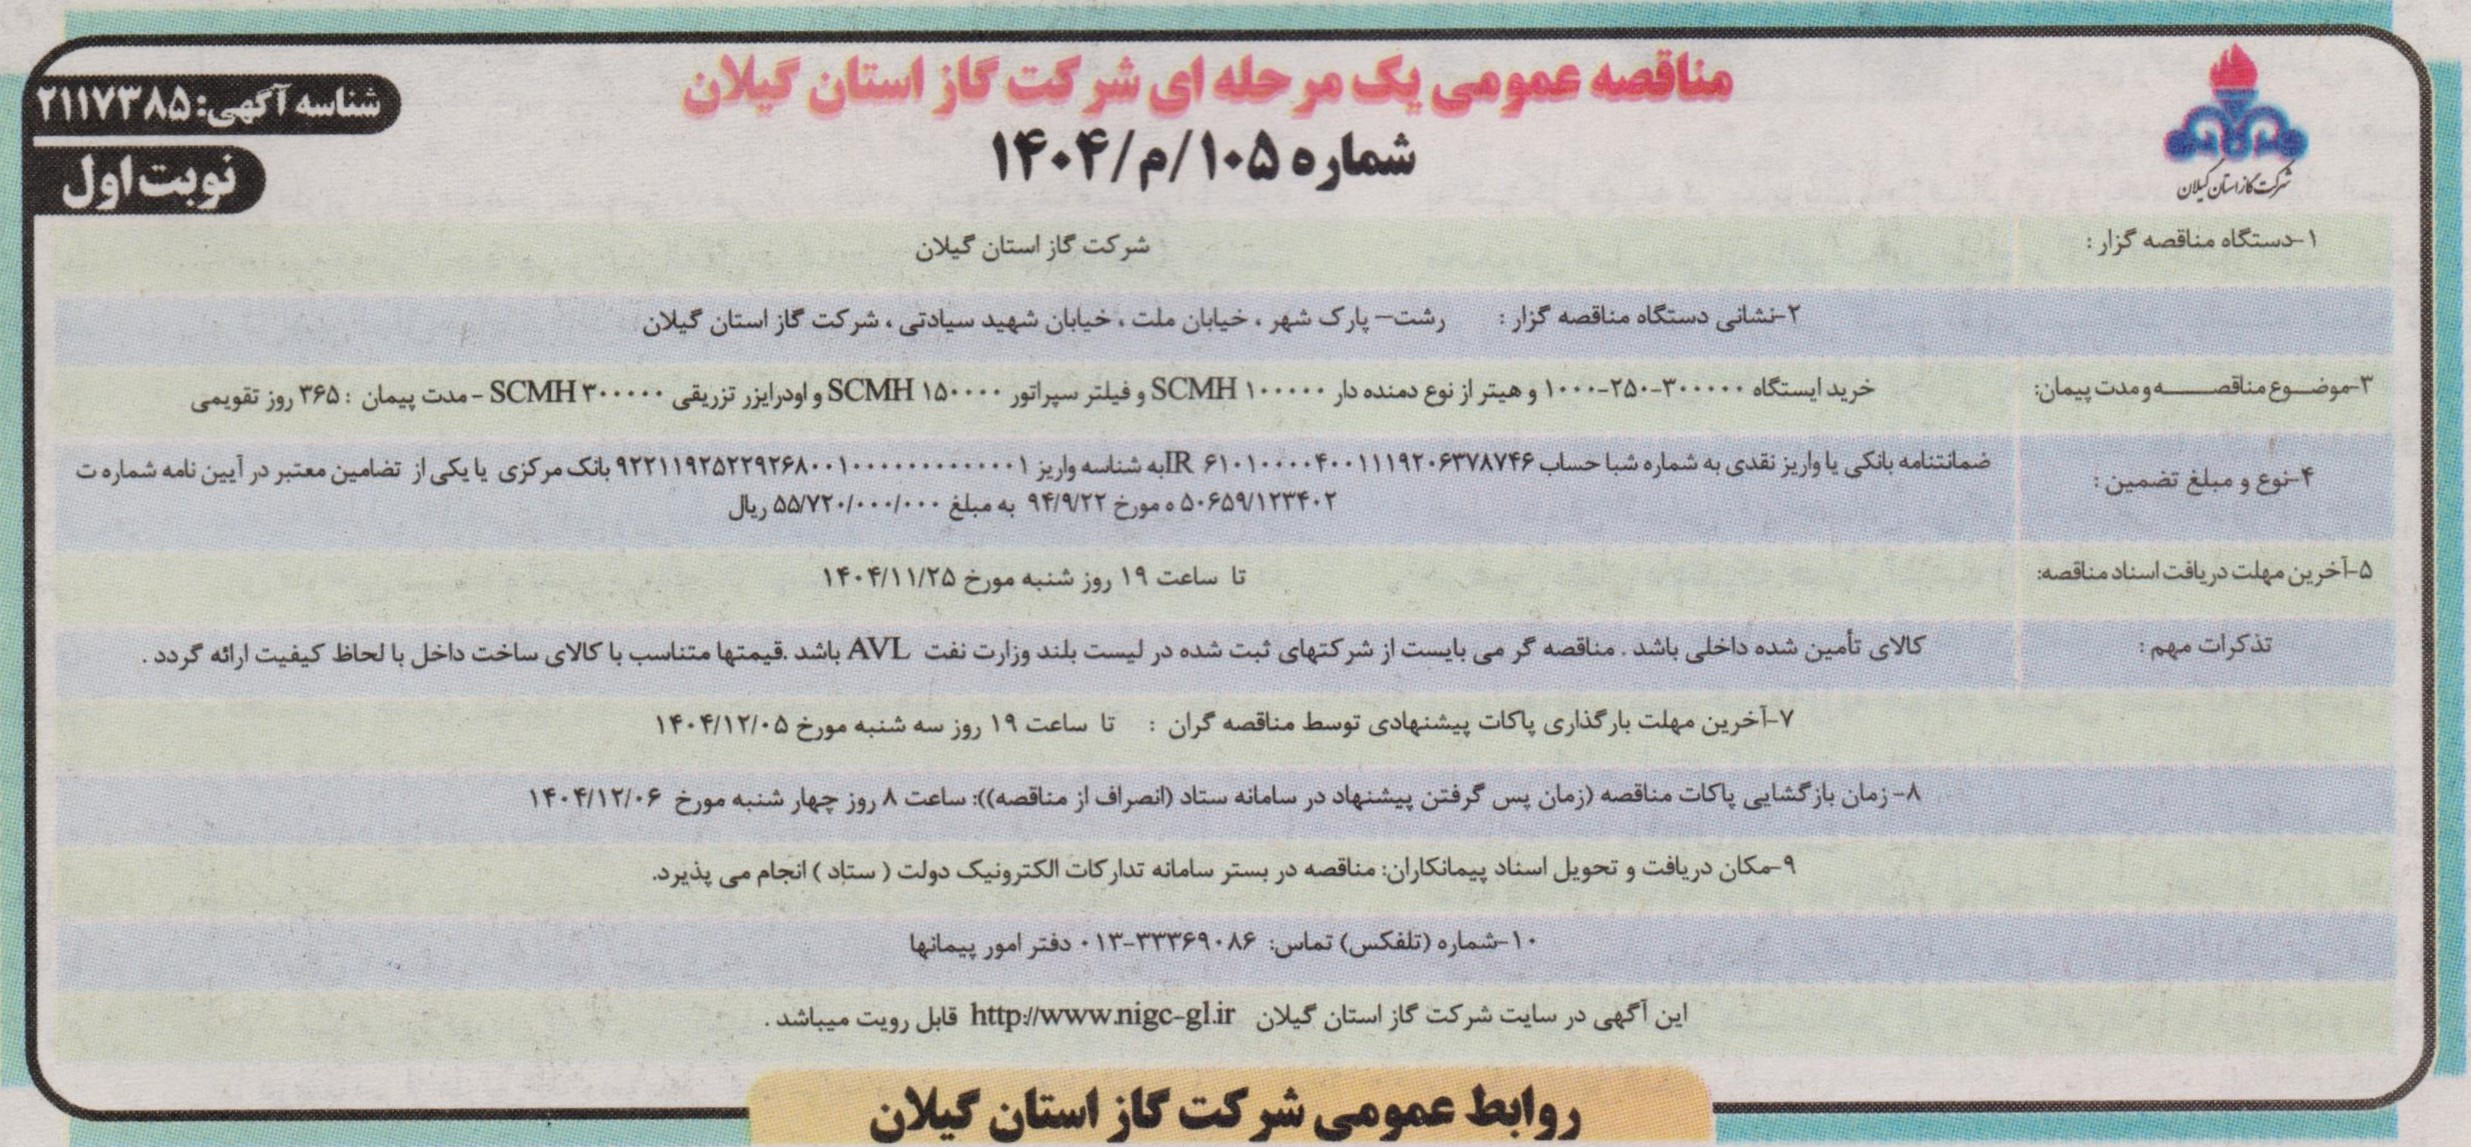 مناقصه عمومی یک مرحله ای شرکت گاز استان گیلان
شماره ۱۰۵/م/۱۴۰۴
شناسه آگهی: ۲۱۱۷۳۸۵
نوبت اول
شرکت گاز استان گیلان
۱-دستگاه مناقصه گزار : شرکت گاز استان گیلان
۲-نشانی دستگاه مناقصه گزار : رشت– پارک شهر ، خیابان ملت ، خیابان شهید سیادتی ، شرکت گاز استان گیلان
۳-موضوع مناقصه و مدت پیمان: خرید ایستگاه ۳۰۰۰۰۰-۲۵۰-۱۰۰۰ و هیتر از نوع دمنده دار ۱۰۰۰۰۰ SCMH و فیلتر سپراتور ۱۵۰۰۰۰ SCMH و اودرایزر تزریقی ۳۰۰۰۰۰ SCMH - مدت پیمان : ۳۶۵ روز تقویمی
۴-نوع و مبلغ تضمین : ضمانتنامه بانکی یا واریز نقدی به شماره شبا حساب IR ۶۱۰۱۰۰۰۰۴۰۰۱۱۱۹۲۰۶۳۷۸۷۴۶ به شناسه واریز ۹۲۲۱۱۹۲۵۲۲۹۲۶۸۰۰۱۰۰۰۰۰۰۰۰۰۰۰۰۰۱ بانک مرکزی یا یکی از تضامین معتبر در آیین نامه شماره ت
۵۰۶۵۹/۱۲۳۴۰۲ ه مورخ ۹۴/۹/۲۲ به مبلغ ۵۵/۷۲۰/۰۰۰/۰۰۰ ریال
۵-آخرین مهلت دریافت اسناد مناقصه: تا ساعت ۱۹ روز شنبه مورخ ۱۴۰۴/۱۱/۲۵
تذکرات مهم : کالای تأمین شده داخلی باشد . مناقصه گر می بایست از شرکتهای ثبت شده در لیست بلند وزارت نفت AVL باشد .قیمتها متناسب با کالای ساخت داخل با لحاظ کیفیت ارائه گردد .
۷-آخرین مهلت بارگذاری پاکات پیشنهادی توسط مناقصه گران : تا ساعت ۱۹ روز سه شنبه مورخ ۱۴۰۴/۱۲/۰۵
۸- زمان بازگشایی پاکات مناقصه (زمان پس گرفتن پیشنهاد در سامانه ستاد (انصراف از مناقصه)): ساعت ۸ روز چهار شنبه مورخ ۱۴۰۴/۱۲/۰۶
۹-مکان دریافت و تحویل اسناد پیمانکاران: مناقصه در بستر سامانه تدارکات الکترونیک دولت ( ستاد ) انجام می پذیرد.
۱۰-شماره (تلفکس) تماس: ۳۳۳۶۹۰۸۶-۰۱۳ دفتر امور پیمانها
این آگهی در سایت شرکت گاز استان گیلان http://www.nigc-gl.ir قابل رویت میباشد .
روابط عمومی شرکت گاز استان گیلان